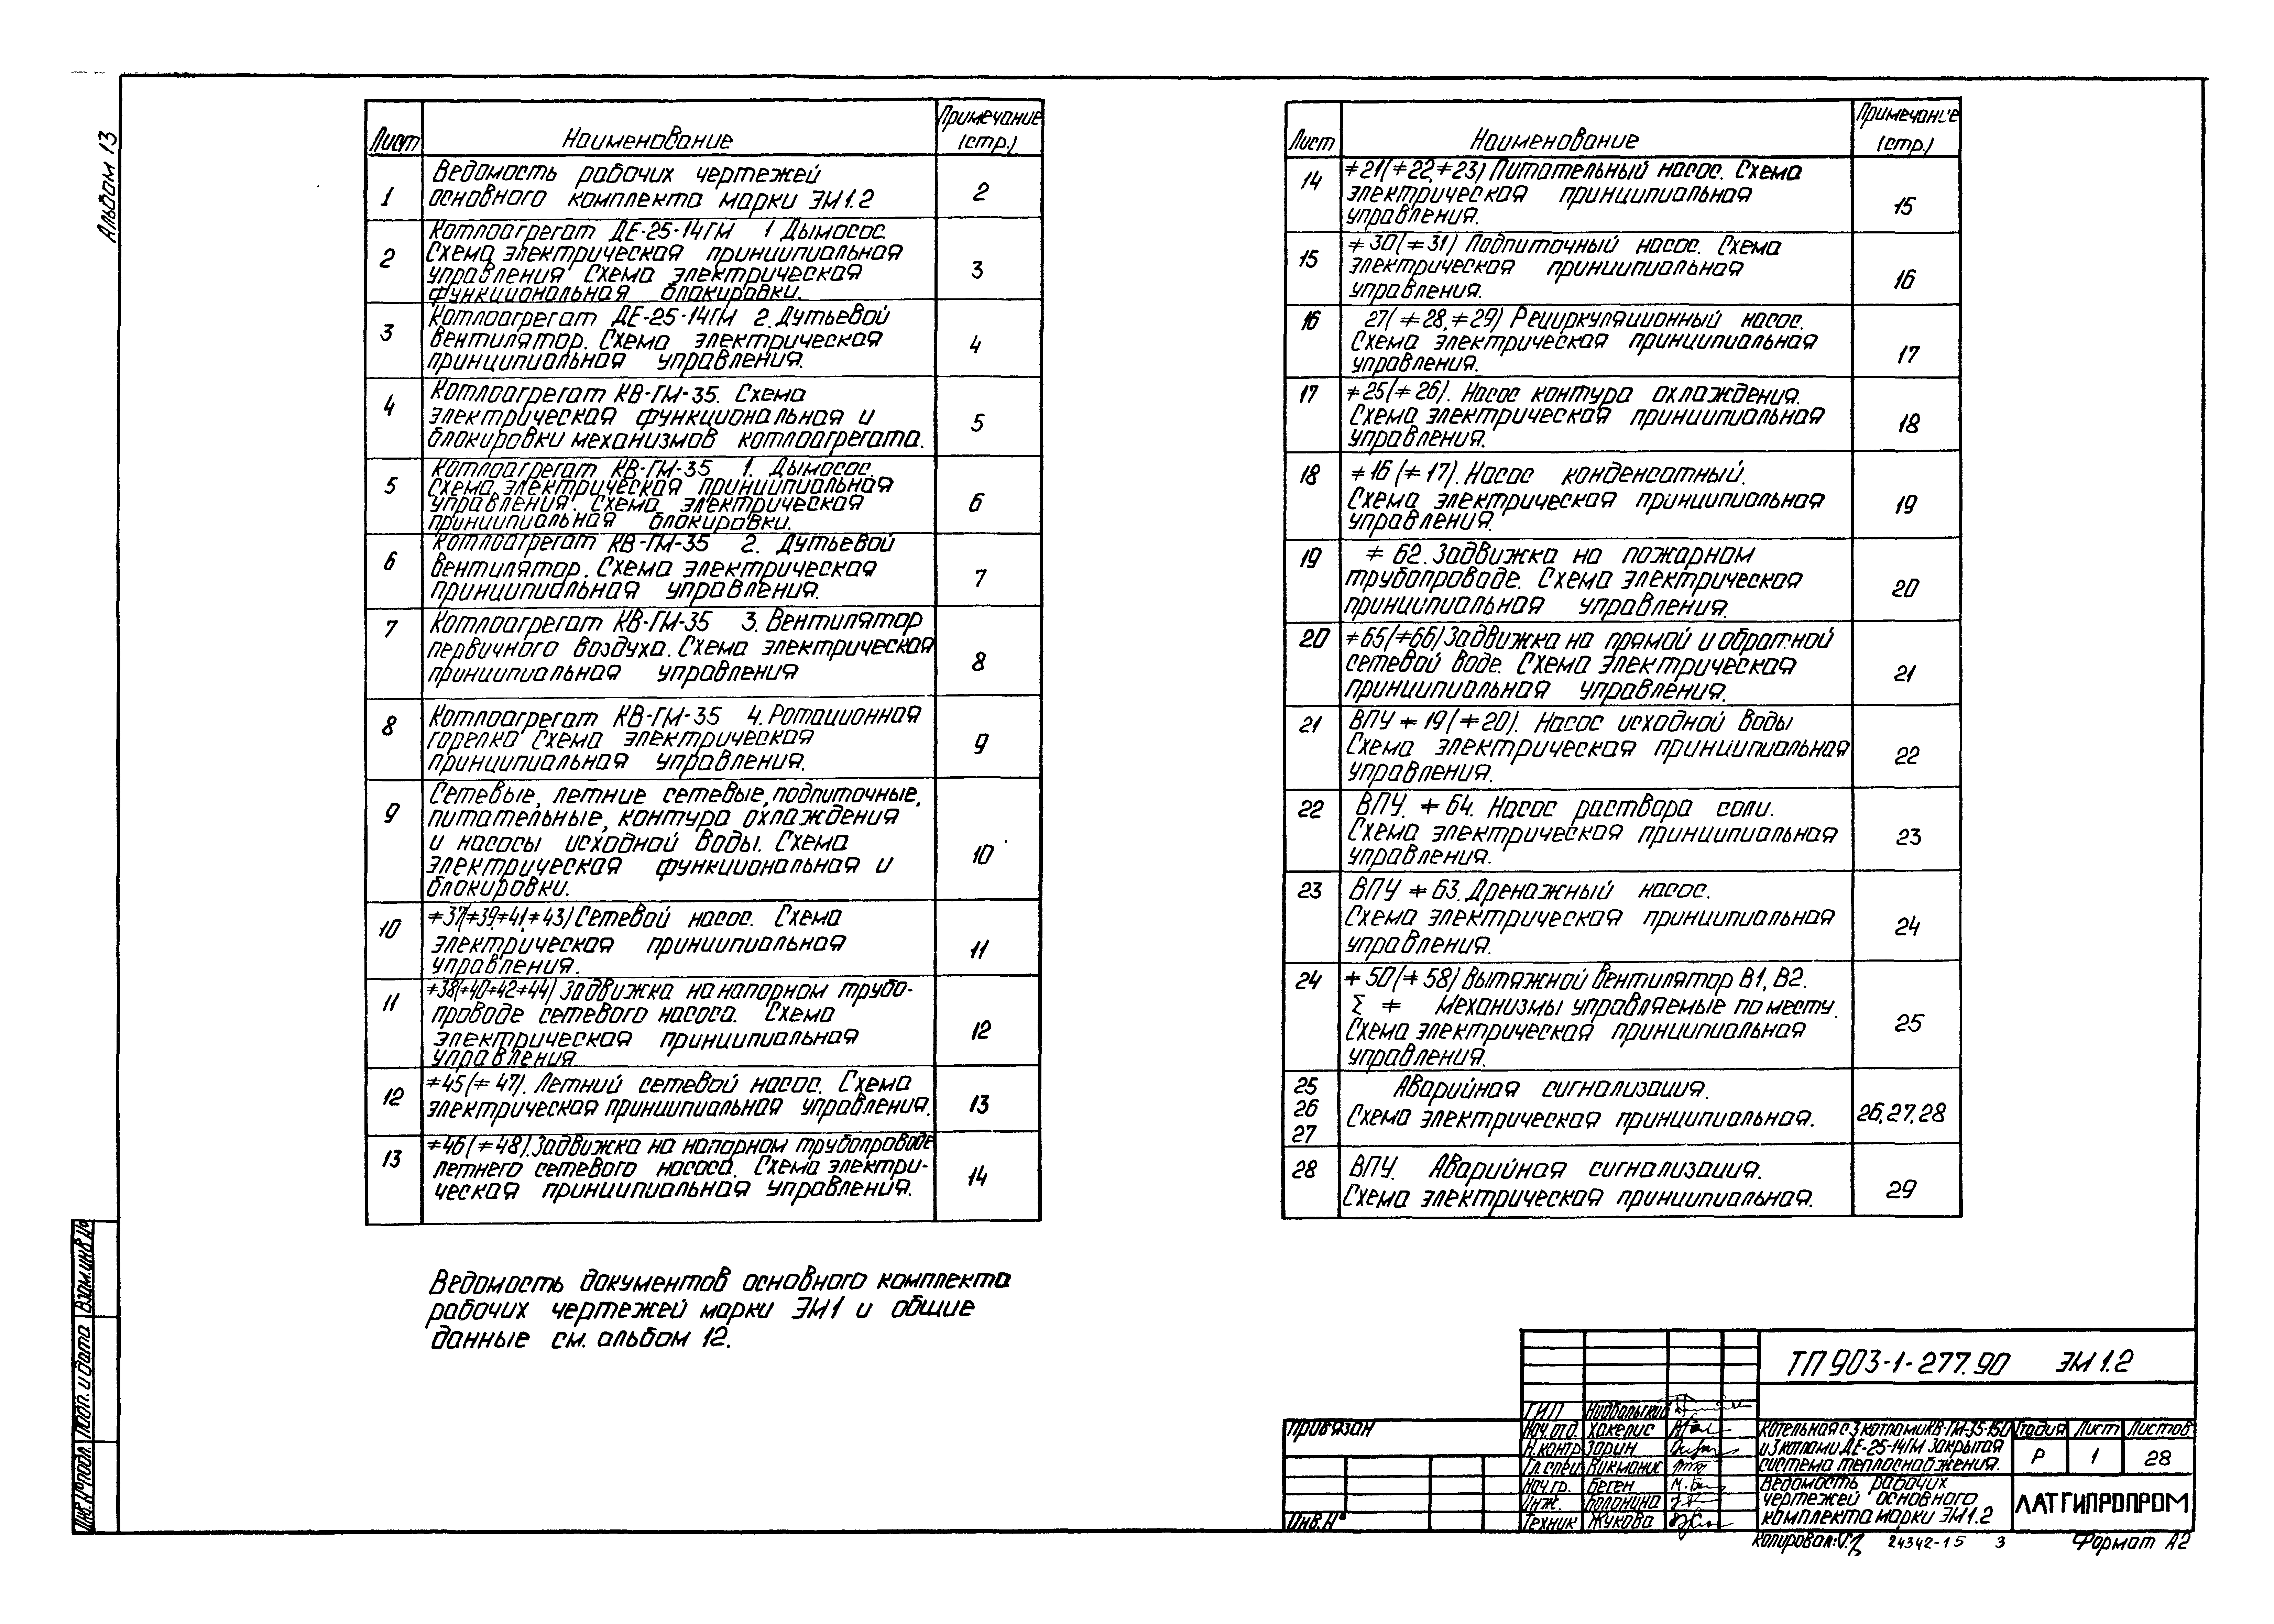 Альбом 13
Лист Наименование Примечание (стр.)
1 Ведомость рабочих чертежей
основного комплекта марки ЭМ1.2 2
2 Котлоагрегат ДЕ-25-14ГМ 1 Дымосос.
Схема электрическая принципиальная
управления Схема электрическая
функциональная блокировки. 3
3 Котлоагрегат ДЕ-25-14ГМ 2. Дутьевой
вентилятор. Схема электрическая
принципиальная управления. 4
4 Котлоагрегат КВ-ГМ-35. Схема
электрическая функциональная и
блокировки механизмов котлоагрегата. 5
5 Котлоагрегат КВ-ГМ-35 1. Дымосос.
Схема электрическая принципиальная
управления. Схема электрическая
принципиальная блокировки. 6
6 Котлоагрегат КВ-ГМ-35 2. Дутьевой
вентилятор. Схема электрическая
принципиальная управления. 7
7 Котлоагрегат КВ-ГМ-35 3. Вентилятор
первичного воздуха. Схема электрическая
принципиальная управления 8
8 Котлоагрегат КВ-ГМ-35 4. Ротационная
горелка Схема электрическая
принципиальная управления. 9
9 Сетевые, летние сетевые, подпиточные,
питательные, контура охлаждения
и насосы исходной воды. Схема
электрическая функциональная и
блокировки. 10
10 ≠37(≠39,≠41,≠43) Сетевой насос. Схема
электрическая принципиальная
управления. 11
11 ≠38(≠40≠42≠44) Задвижка на напорном трубо-
проводе сетевого насоса. Схема
электрическая принципиальная
управления 12
12 ≠45(≠47). Летний сетевой насос. Схема
электрическая принципиальная управления. 13
13 ≠46(≠48). Задвижка на напорном трубопроводе
летнего сетевого насоса. Схема электри-
ческая принципиальная управления. 14
Ведомость документов основного комплекта
рабочих чертежей марки ЭМ1 и общие
данные см. альбом 12.
Лист Наименование Примечание (стр.)
14 ≠21(≠22,≠23) Питательный насос. Схема
электрическая принципиальная
управления. 15
15 ≠30(≠31) Подпиточный насос. Схема
электрическая принципиальная
управления. 16
16 27(≠28,≠29) Рециркуляционный насос.
Схема электрическая принципиальная
управления. 17
17 ≠25(≠26). Насос контура охлаждения.
Схема электрическая принципиальная
управления. 18
18 ≠16(≠17). Насос конденсатный.
Схема электрическая принципиальная
управления. 19
19 ≠62. Задвижка на пожарном
трубопроводе. Схема электрическая
принципиальная управления. 20
20 ≠65(≠66) Задвижка на прямой и обратной
сетевой воде. Схема электрическая
принципиальная управления. 21
21 ВПУ ≠19(≠20). Насос исходной воды
Схема электрическая принципиальная
управления. 22
22 ВПУ. ≠64. Насос раствора соли.
Схема электрическая принципиальная
управления. 23
23 ВПУ ≠63. Дренажный насос.
Схема электрическая принципиальная
управления. 24
24 ≠50(≠58) Вытяжной вентилятор В1, В2.
Σ ≠ Механизмы управляемые по месту.
Схема электрическая принципиальная
управления. 25
25 Аварийная сигнализация.
26 Схема электрическая принципиальная. 26,27,28
27
28 ВПУ. Аварийная сигнализация.
Схема электрическая принципиальная. 29
ТП 903-1-277.90 ЭМ1.2
Привязан
Инв. №
ГИП Нидбальский
Нач.отд. Хакелис
Н.контр Зорин
Гл.спец. Викманис
Нач.гр. Беген
Инж. Болонина
Техник Жукова
Котельная с 3 котлами КВ-ГМ-35-150
и 3 котлами ДЕ-25-14ГМ Закрытая
система теплоснабжения.
Стадия Лист Листов
Р 1 28
Ведомость рабочих
чертежей основного
комплекта марки ЭМ1.2
ЛАТГИПРОПРОМ
Копировал: 24342-15 3 Формат А2
Взам. инв. №
Подп. и дата
Инв. № подл.